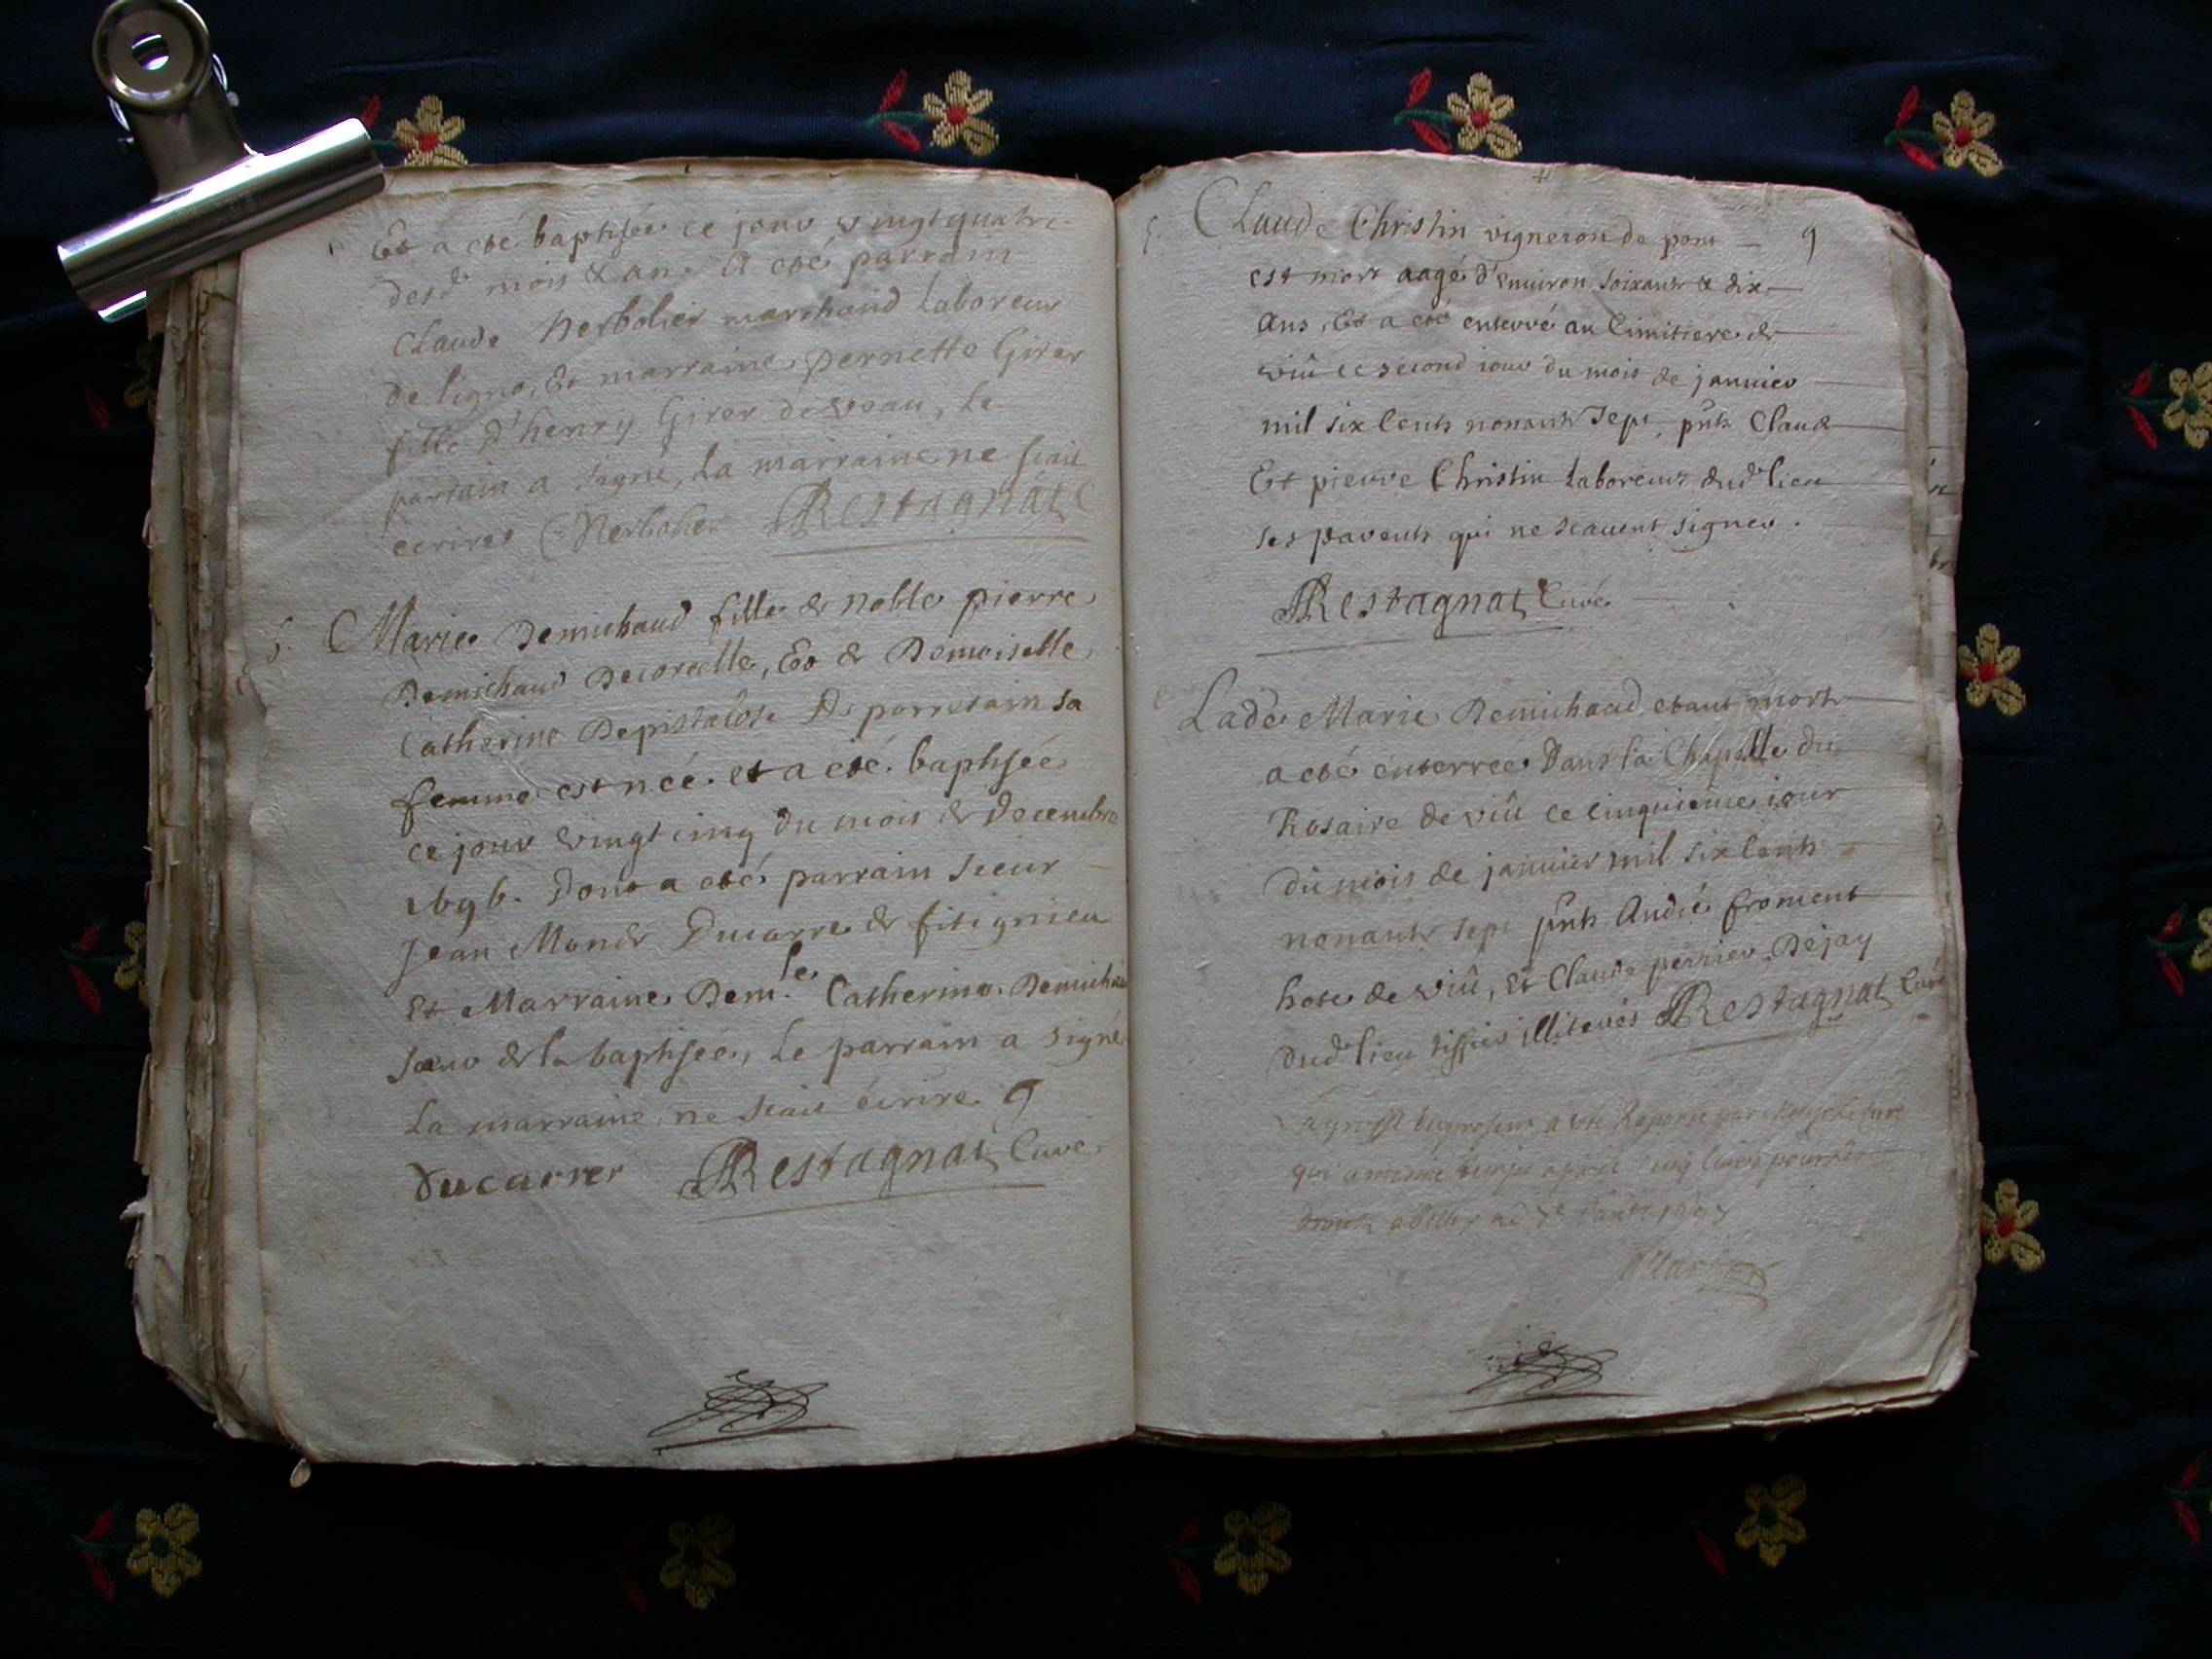 Et a eté baptisée ce jour vingt quatre
desd. mois & an. A eté parrain
Claude Herbolier marchand Laboreur
de ligno, Et marraine pernette Girer
fille d'henry Girer de veau, Le
parrain a signé, La marraine ne sçait
ecrire Herbolier Restagnat C
Marie Demichaud fille de noble pierre
Demichaud Decorcelle, Et de Demoiselle
Catherine De porresain sa
femme est née. et a eté. baptisée
ce jour vingt cinq du mois de Decembre
Dont a eté parrain sieur
Jean Ducarre de fitignieu
Et Marraine Dem.le Catherine Demichau
sœur de la baptisée, Le parrain a signé
La marraine ne sçait écrire
Ducarrer Restagnat Curé
Claude Christin vigneron de pont 9
est mort aagé d'enuiron soixante & dix
Ans, Et a eté enterré au Cimitiere de
viû ce second iour du mois de januier
mil six Cents nonante sept, pnts Claude
Et pierre Christin Laboreurs dud. lieu
ses parents qui ne scauent signer.
Restagnat Curé
Lade Marie Demichaud etant morte
a eté enterrée Dans la Chapelle du
Rosaire de viû ce cinquieme iour
du mois de januier mil six Cents
nonante sept pnts André froment
hote de viû, Et Claude perrier Dejay
dud. lieu tissier illiterés Restagnat Curé